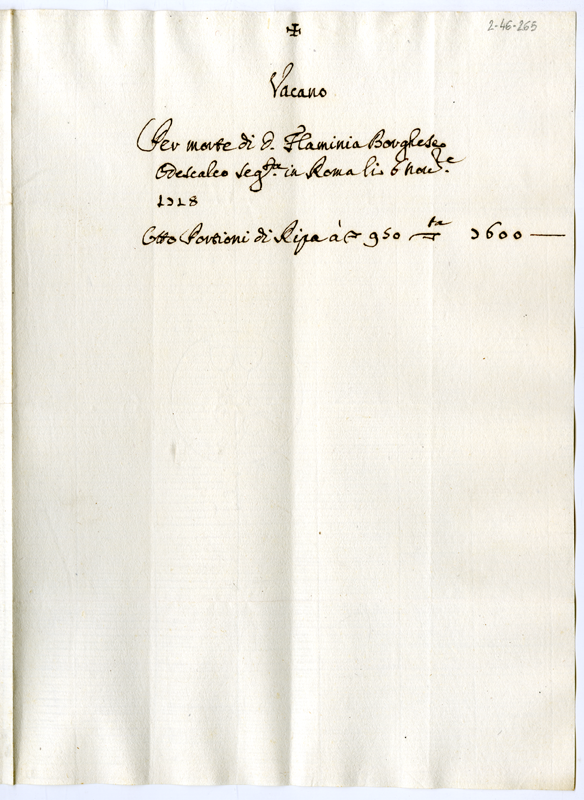 ✠
2-46-265
Vacano
Per morte di D. Flaminia Borghese
Odescalco seg.ta in Roma li 6 Nov.re
1718
Otto Portioni di Ripa à 950 7600 —